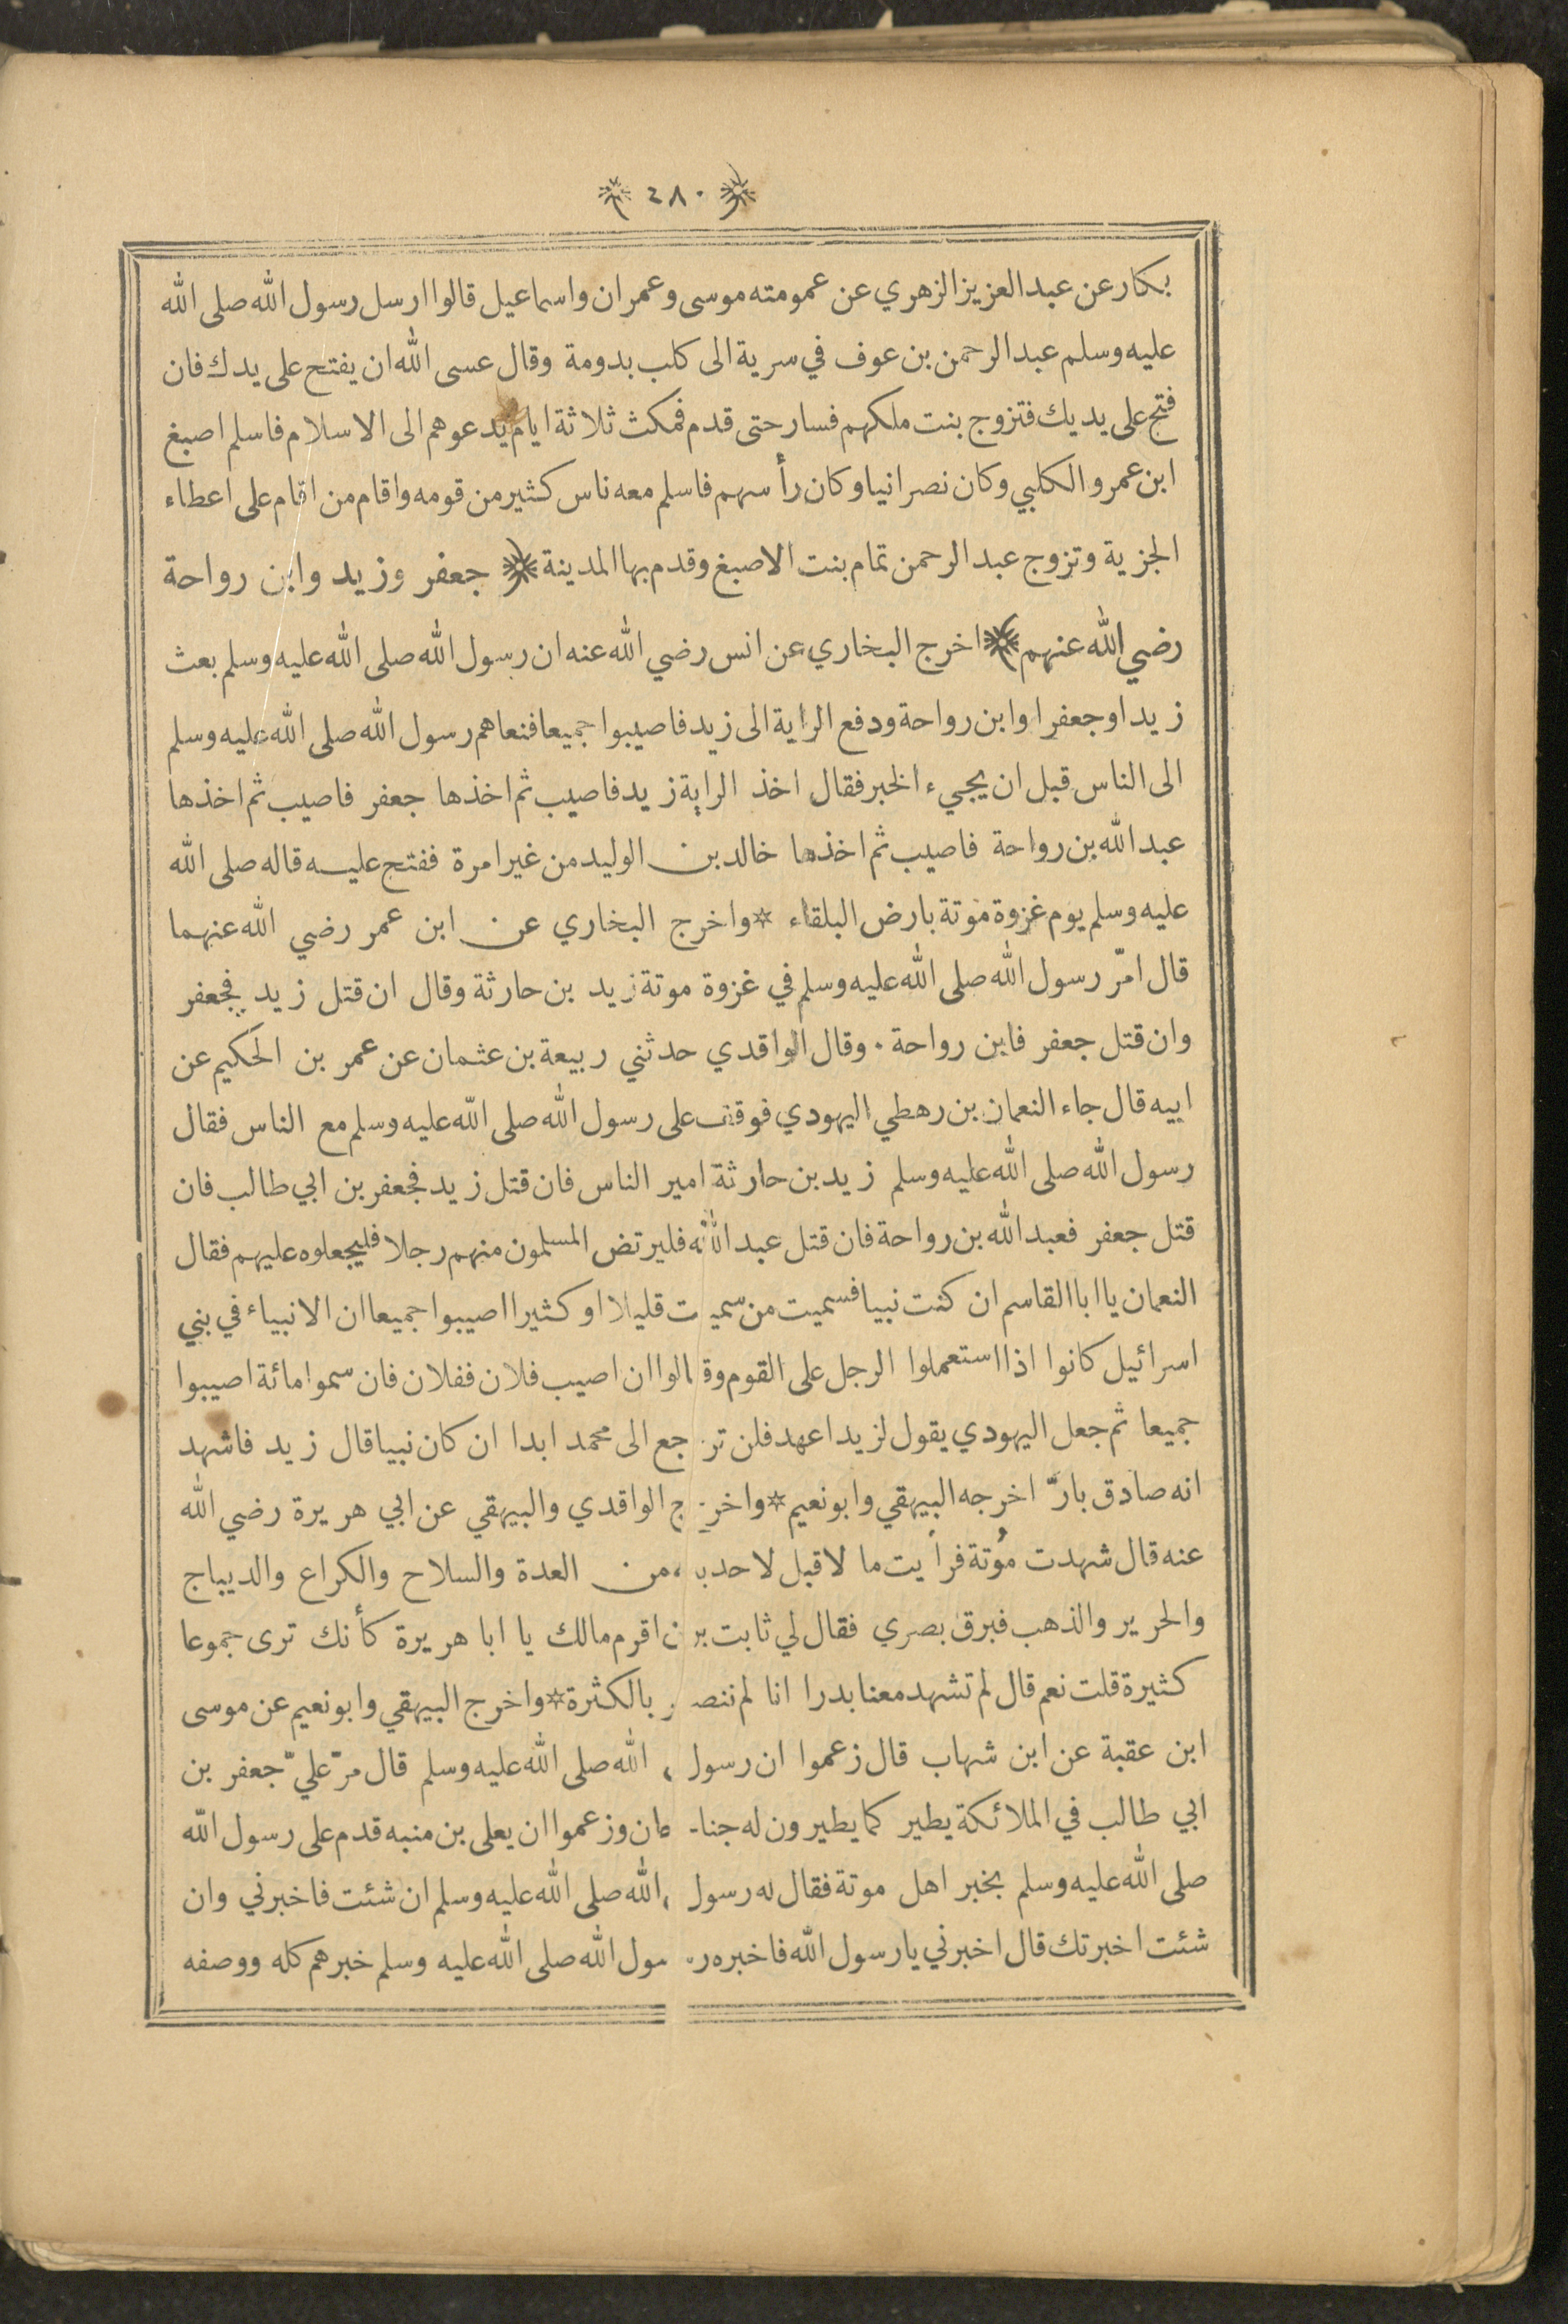 ﴿ ٢٨٠ ﴾
بكار عن عبد العزيز الزهري عن عمومته موسى وعمران واسماعيل قالوا ارسل رسول الله صلى الله
عليه وسلم عبد الرحمن بن عوف في سرية الى كلب بدومة وقال عسى الله ان يفتح على يدك فان
فتح على يديك فتزوج بنت ملكهم فسار حتى قدم فمكث ثلاثة ايام يدعوهم الى الاسلام فاسلم اصبغ
ابن عمرو الكلبي وكان نصرانيا وكان رأسهم فاسلم معه ناس كثير من قومه واقام من اقام على اعطاء
الجزية وتزوج عبد الرحمن تمام بنت الاصبغ وقدم بها المدينة ﴿ جعفر وزيد وابن رواحة
رضي الله عنهم ﴾ اخرج البخاري عن انس رضي الله عنه ان رسول الله صلى الله عليه وسلم بعث
زيدا وجعفرا وابن رواحة ودفع الراية الى زيد فاصيبوا جميعا فنعاهم رسول الله صلى الله عليه وسلم
الى الناس قبل ان يجيء الخبر فقال اخذ الراية زيد فاصيب ثم اخذها جعفر فاصيب ثم اخذها
عبد الله بن رواحة فاصيب ثم اخذها خالد بن الوليد من غير امرة ففتح عليه قاله صلى الله
عليه وسلم يوم غزوة موتة بارض البلقاء * واخرج البخاري عن ابن عمر رضي الله عنهما
قال امّر رسول الله صلى الله عليه وسلم في غزوة موتة زيد بن حارثة وقال ان قتل زيد فجعفر
وان قتل جعفر فابن رواحة . وقال الواقدي حدثني ربيعة بن عثمان عن عمر بن الحكيم عن
ابيه قال جاء النعمان بن رهطي اليهودي فوقف على رسول الله صلى الله عليه وسلم مع الناس فقال
رسول الله صلى الله عليه وسلم زيد بن حارثة امير الناس فان قتل زيد فجعفر بن ابي طالب فان
قتل جعفر فعبد الله بن رواحة فان قتل عبد الله فليرتض المسلمون منهم رجلا فليجعلوه عليهم فقال
النعمان يا ابا القاسم ان كنت نبيا فسميت من سميت قليلا او كثيرا اصيبوا جميعا ان الانبياء في بني
اسرائيل كانوا اذا استعملوا الرجل على القوم وقالوا ان اصيب فلان ففلان فان سموا مائة اصيبوا
جميعا ثم جعل اليهودي يقول لزيد اعهد فلن ترجع الى محمد ابدا ان كان نبيا قال زيد فاشهد
انه صادق بارّ اخرجه البيهقي وابو نعيم * واخرج الواقدي والبيهقي عن ابي هريرة رضي الله
عنه قال شهدت مُوتة فرأيت ما لا قبل لاحد به من العدة والسلاح والكراع والديباج
والحرير والذهب فبرق بصري فقال لي ثابت بن اقرم مالك يا ابا هريرة كأنك ترى جموعا
كثيرة قلت نعم قال لم تشهد معنا بدرا انا لم ننصر بالكثرة * واخرج البيهقي وابو نعيم عن موسى
ابن عقبة عن ابن شهاب قال زعموا ان رسول الله صلى الله عليه وسلم قال مرّ عليّ جعفر بن
ابي طالب في الملائكة يطير كما يطيرون له جناحان وزعموا ان يعلى بن منبه قدم على رسول الله
صلى الله عليه وسلم بخبر اهل موتة فقال له رسول الله صلى الله عليه وسلم ان شئت فاخبرني وان
شئت اخبرتك قال اخبرني يا رسول الله فاخبره رسول الله صلى الله عليه وسلم خبرهم كله ووصفه